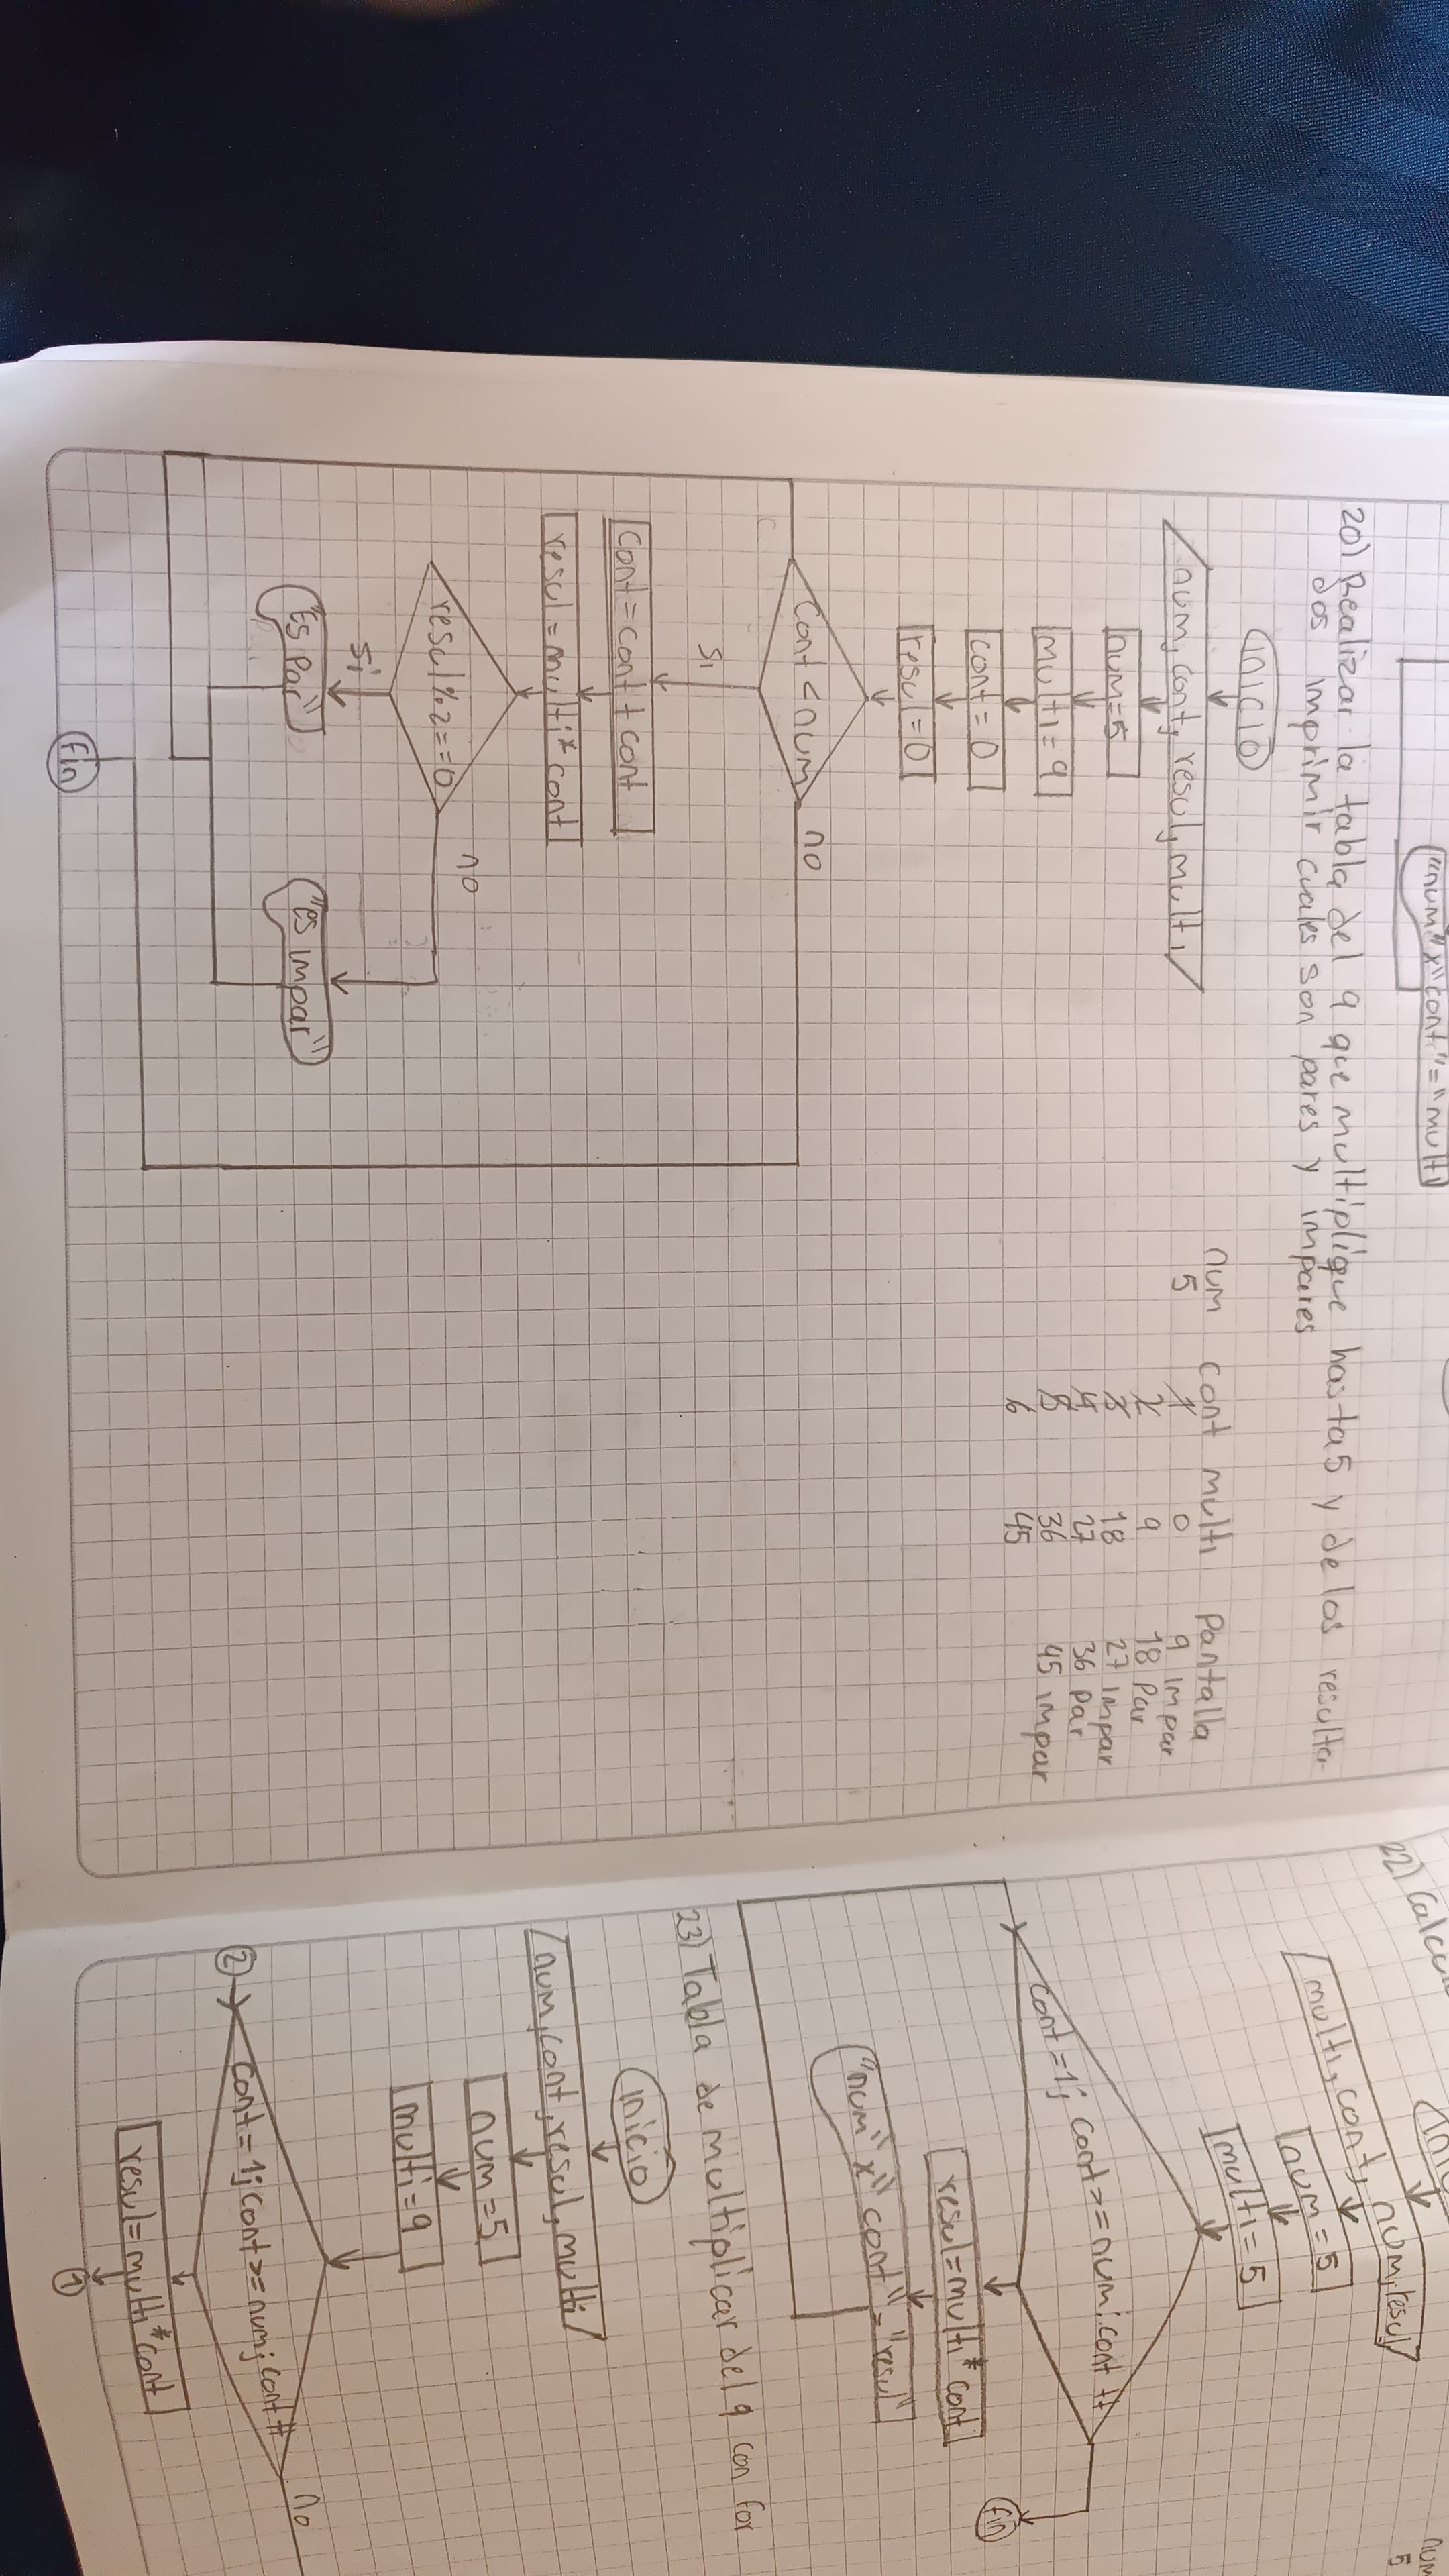 "num" x "cont" = "multi
20) Realizar la tabla del 9 que multiplique hasta 5 y de los resulta-
dos imprimir cuales son pares y impares
inicio
num, cont, resul, multi
num=5
multi=9
cont=0
resul=0
cont < num
no
si
cont=cont+cont
resul=multi*cont
resul%2==0
no
si
"Es Par"
"es impar"
fin
num cont multi Pantalla
5 1 0 9 impar
2 9 18 Par
3 18 27 impar
4 27 36 par
5 36 45 impar
6 45
22)
multi, cont, num, resul
num=5
multi=5
cont=1; cont>=num; cont++
resul=multi*cont
"num" x "cont" = "resul"
fin
num
5
23) Tabla de multiplicar del 9 con for
inicio
num, cont, resul, multi
num=5
multi=9
2
cont=1; cont>=num; cont++
no
resul=multi*cont
1